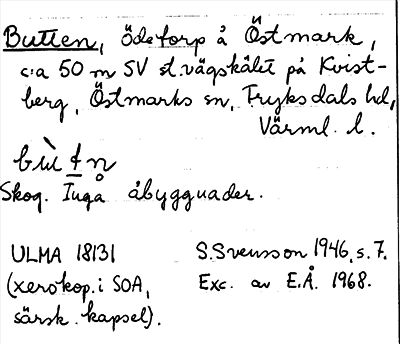 Butten, ödetorp å Östmark,
c:a 50 m SV st.vägskälet på Kvist-
berg, Östmarks sn, Fryksdals hd,
Värml. l.
bùtn̥
Skog. Inga åbyggnader.
ULMA 18131
(xerokop. i SOA,
särsk. kapsel).
S. Svensson 1946, s. 7.
Exc. av E.Å. 1968.